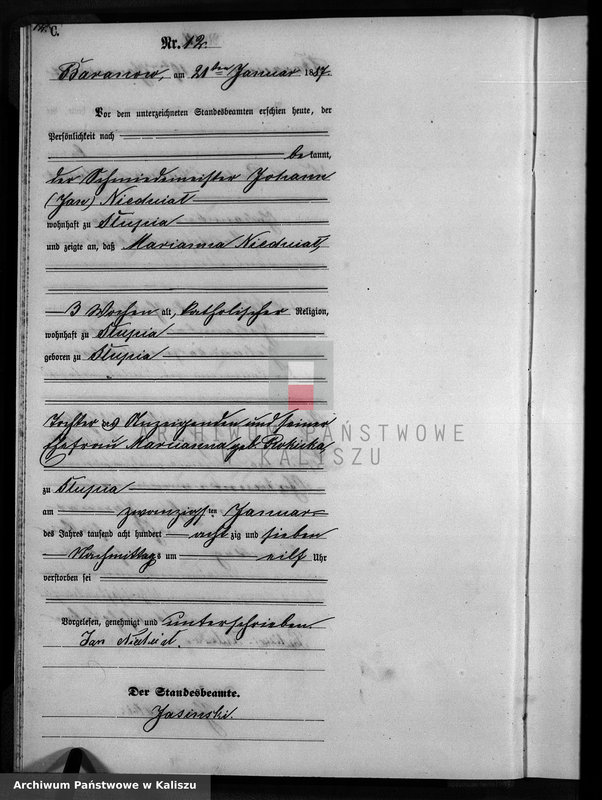 C.
Nr. 12.
Baranow, am 21ten Januar 1887.
Vor dem unterzeichneten Standesbeamten erschien heute, der
Persönlichkeit nach
bekannt,
der Schmiedemeister Johann
(Jan) Niedwiat
wohnhaft zu Slupia
und zeigte an, daß Marianna Niedwiat,
3 Wochen alt, katholischer Religion,
wohnhaft zu Slupia
geboren zu Slupia
Tochter des Anzeigenden und seiner
Ehefrau Marianna geb. Rokicka
ARCHIWUM PAŃSTWOWE
KALISZU
zu Slupia
am zwanzigsten Januar
des Jahres tausend acht hundert achtzig und sieben
Nachmittags um eilf Uhr
verstorben sei
Vorgelesen, genehmigt und unterschrieben
Jan
Der Standesbeamte.
Jasinski.
Archiwum Państwowe w Kaliszu